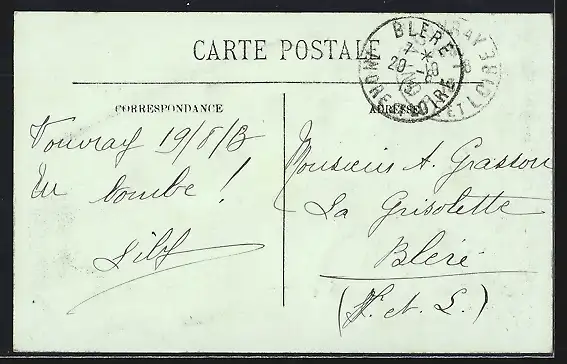 CARTE POSTALE
BLERE
7 * 20 -10
8
INDRE ET LOIRE
VRAY
ET LOIRE
CORRESPONDANCE
ADRESSE
Vouvray 19/8/13
En tombe !
Monsieur A. Grasson
La Grisolette
Bléré
(I. et L.)